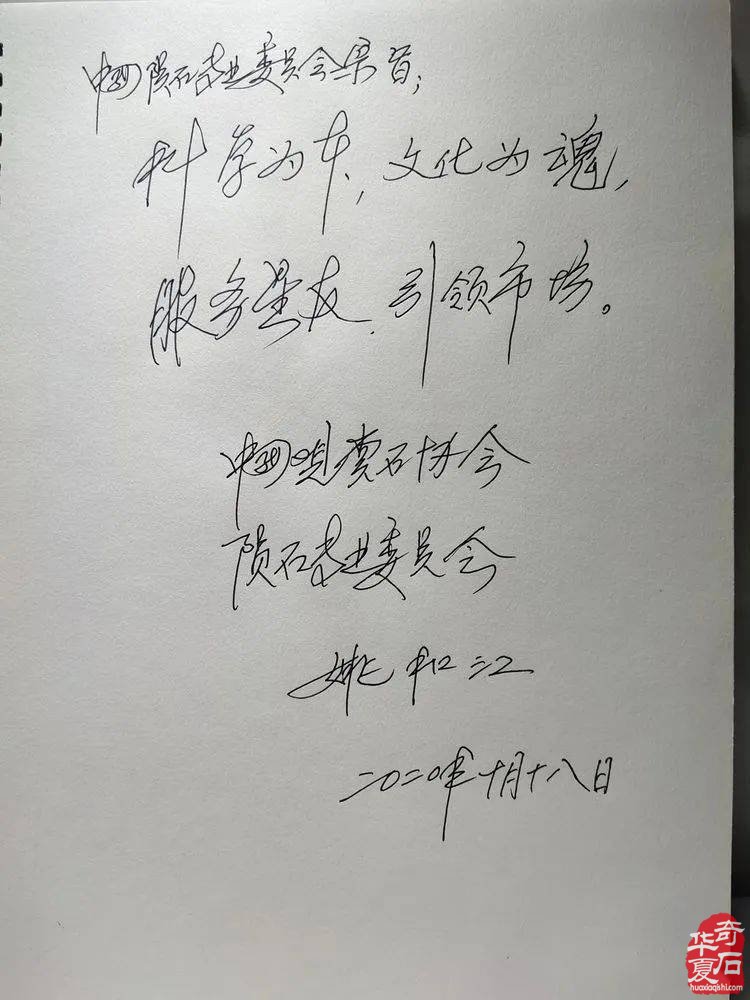 中国陨石专业委员会宗旨；
科学为本，文化为魂，
服务星友，引领市场。
中国观赏石协会
陨石专业委员会
姚和江
二〇二〇年十月十八日
华夏奇石
huaxiaqishi.com